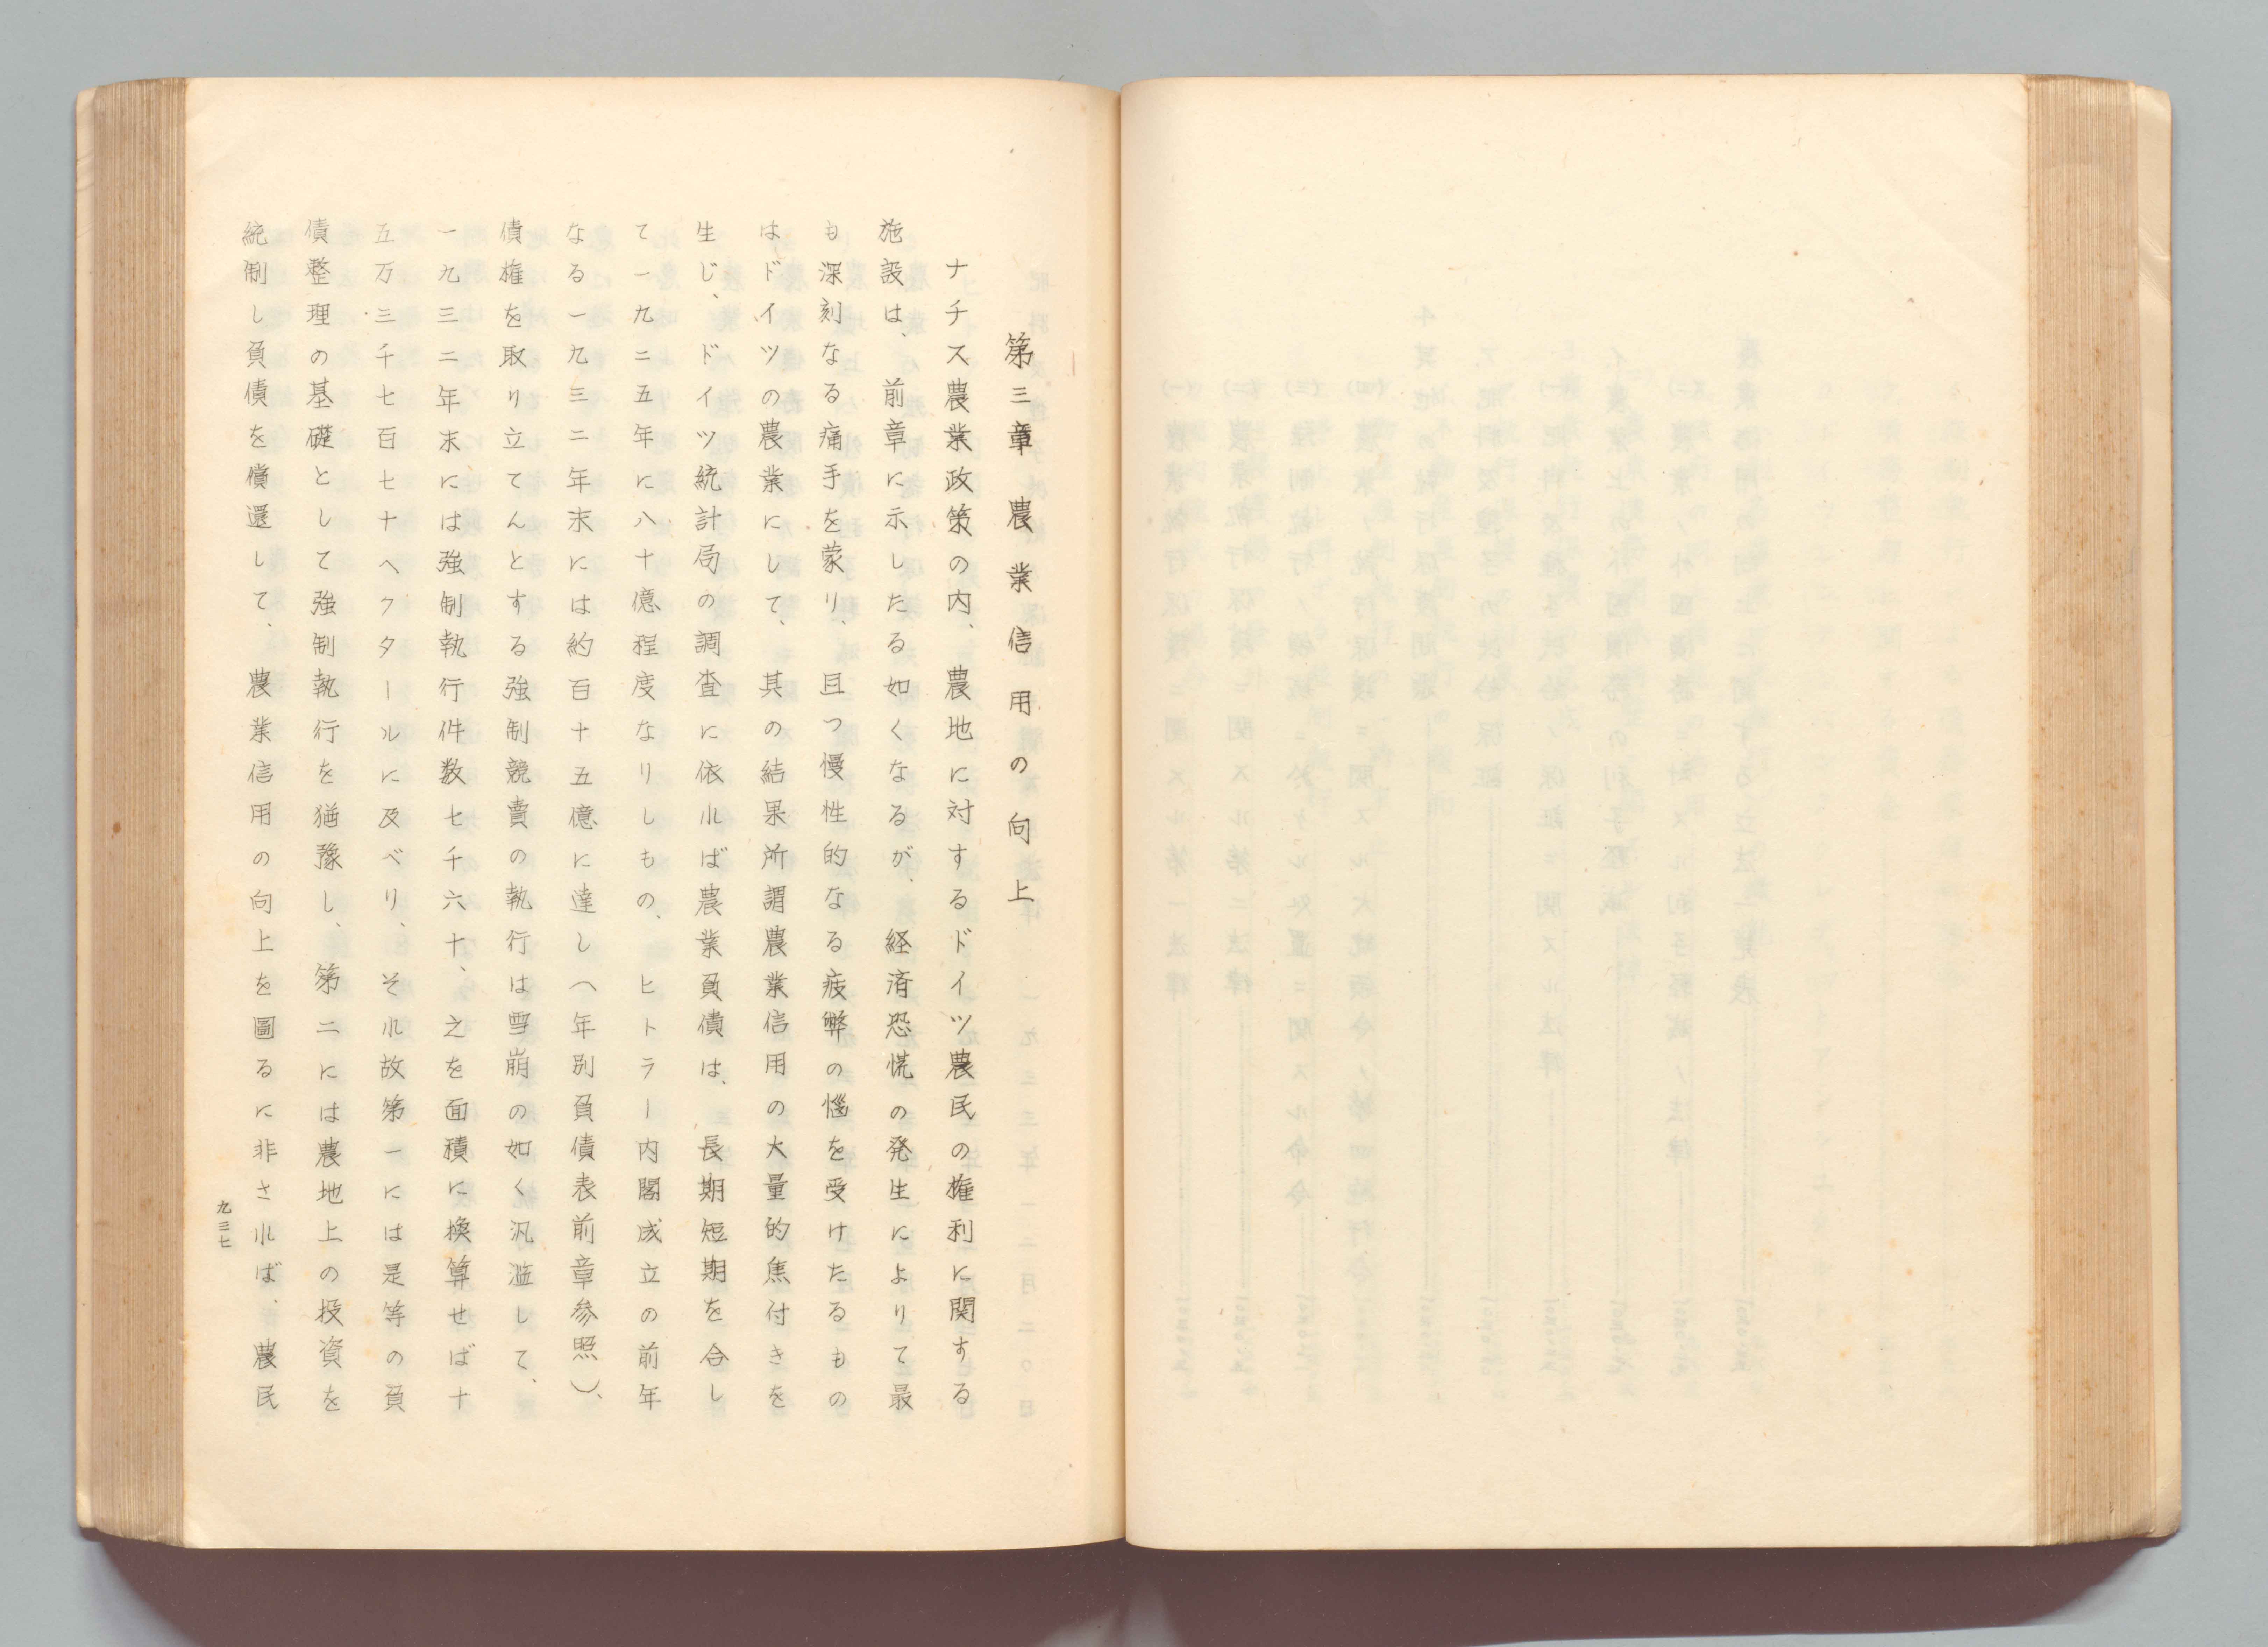 第三章 農業信用の向上
ナチス農業政策の内、農地に対するドイツ農民の権利に関する
施設は、前章に示したる如くなるが、経済恐慌の発生によりて最
も深刻なる痛手を蒙り、且つ慢性的なる疲弊の惱を受けたるもの
はドイツの農業にして、其の結果所謂農業信用の大量的焦付きを
生じ、ドイツ統計局の調査に依れば農業負債は、長期短期を合し
て一九二五年に八十億程度なりしもの、ヒトラー内閣成立の前年
なる一九三二年末には約百十五億に達し(年別負債表前章参照)、
債権を取り立てんとする強制競賣の執行は雪崩の如く汎濫して、
一九三二年末には強制執行件数七千六十、之を面積に換算せば十
五万三千七百七十ヘクタールに及べり、それ故第一には是等の負
債整理の基礎として強制執行を猶豫し、第二には農地上の投資を
統制し負債を償還して、農業信用の向上を圖るに非されば、農民
九三七